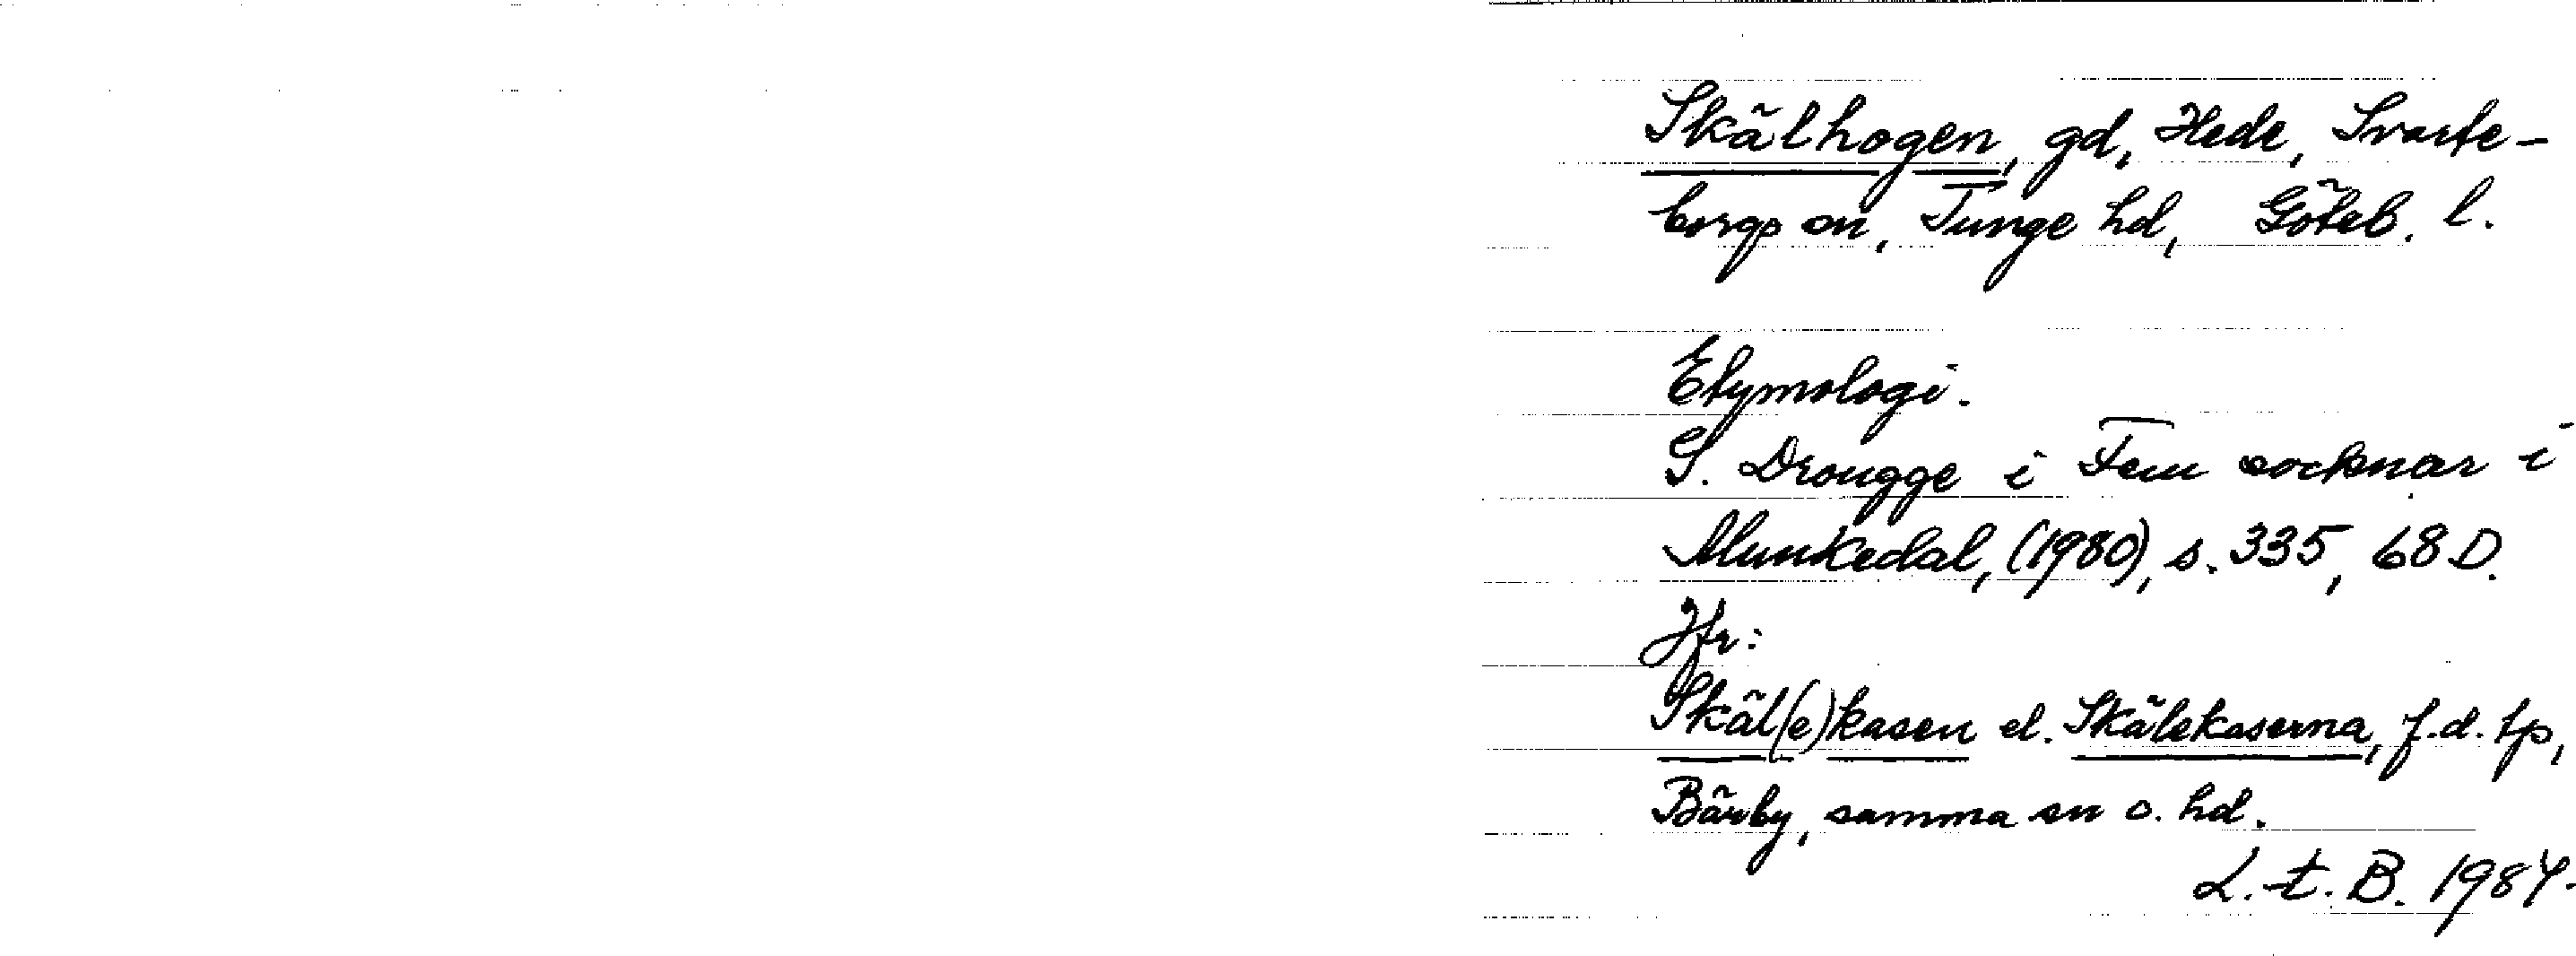 Skälhogen, gd, Hede, Svarte-
borgs sn, Tunge hd, Göteb. l.
Etymologi.
S. Drougge i Fem socknar i
Munkedal, (1980), s. 335, 68 D.
Jfr:
Skäl(e)kasen el. Skälekaserna, f.d. tp,
Bärby, samma sn o. hd.
L. t. B. 1984.